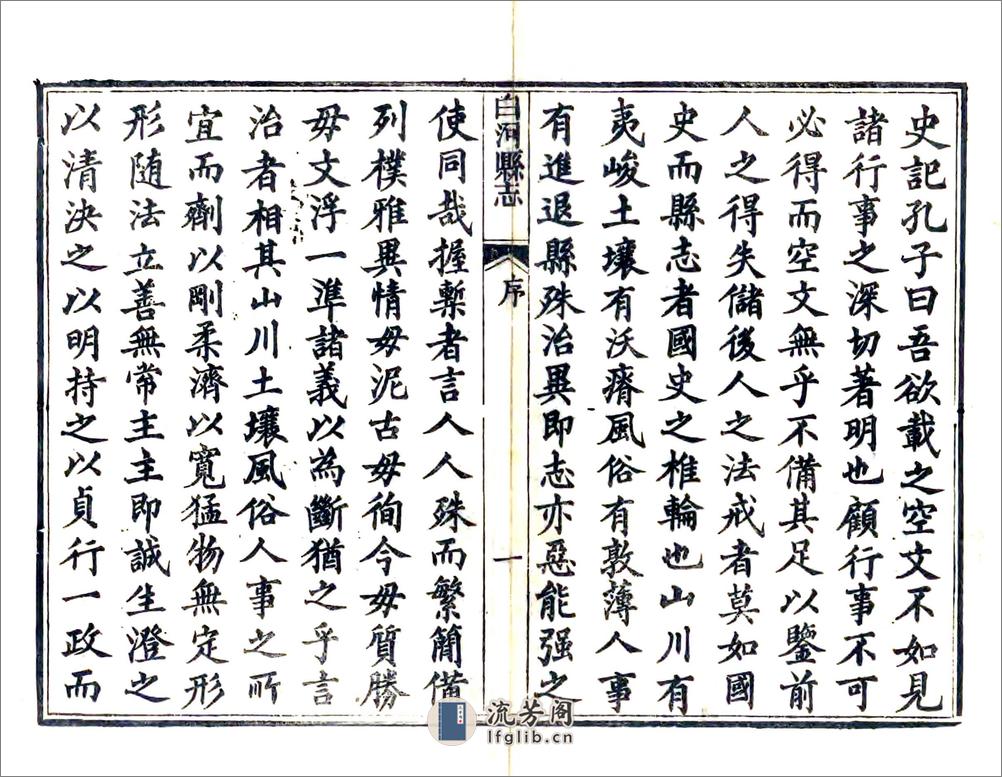 史記孔子曰吾欲載之空文不如見
諸行事之深切著明也顧行事不可
必得而空文無乎不備其足以鑒前
人之得失儲後人之法戒者莫如國
史而縣志者國史之椎輪也山川有
夷峻土壤有沃瘠風俗有敦薄人事
有進退縣殊治異即志亦惡能强之
白河縣志
序
一
使同哉握槧者言人人殊而繁簡備
列樸雅異情毋泥古毋徇今毋質勝
毋文浮一準諸義以為斷猶之乎言
治者相其山川土壤風俗人事之所
宜而劑以剛柔濟以寬猛物無定形
形随法立善無常主主即誠生澄之
以清決之以明持之以貞行一政而
流芳阁
lfglib.cn